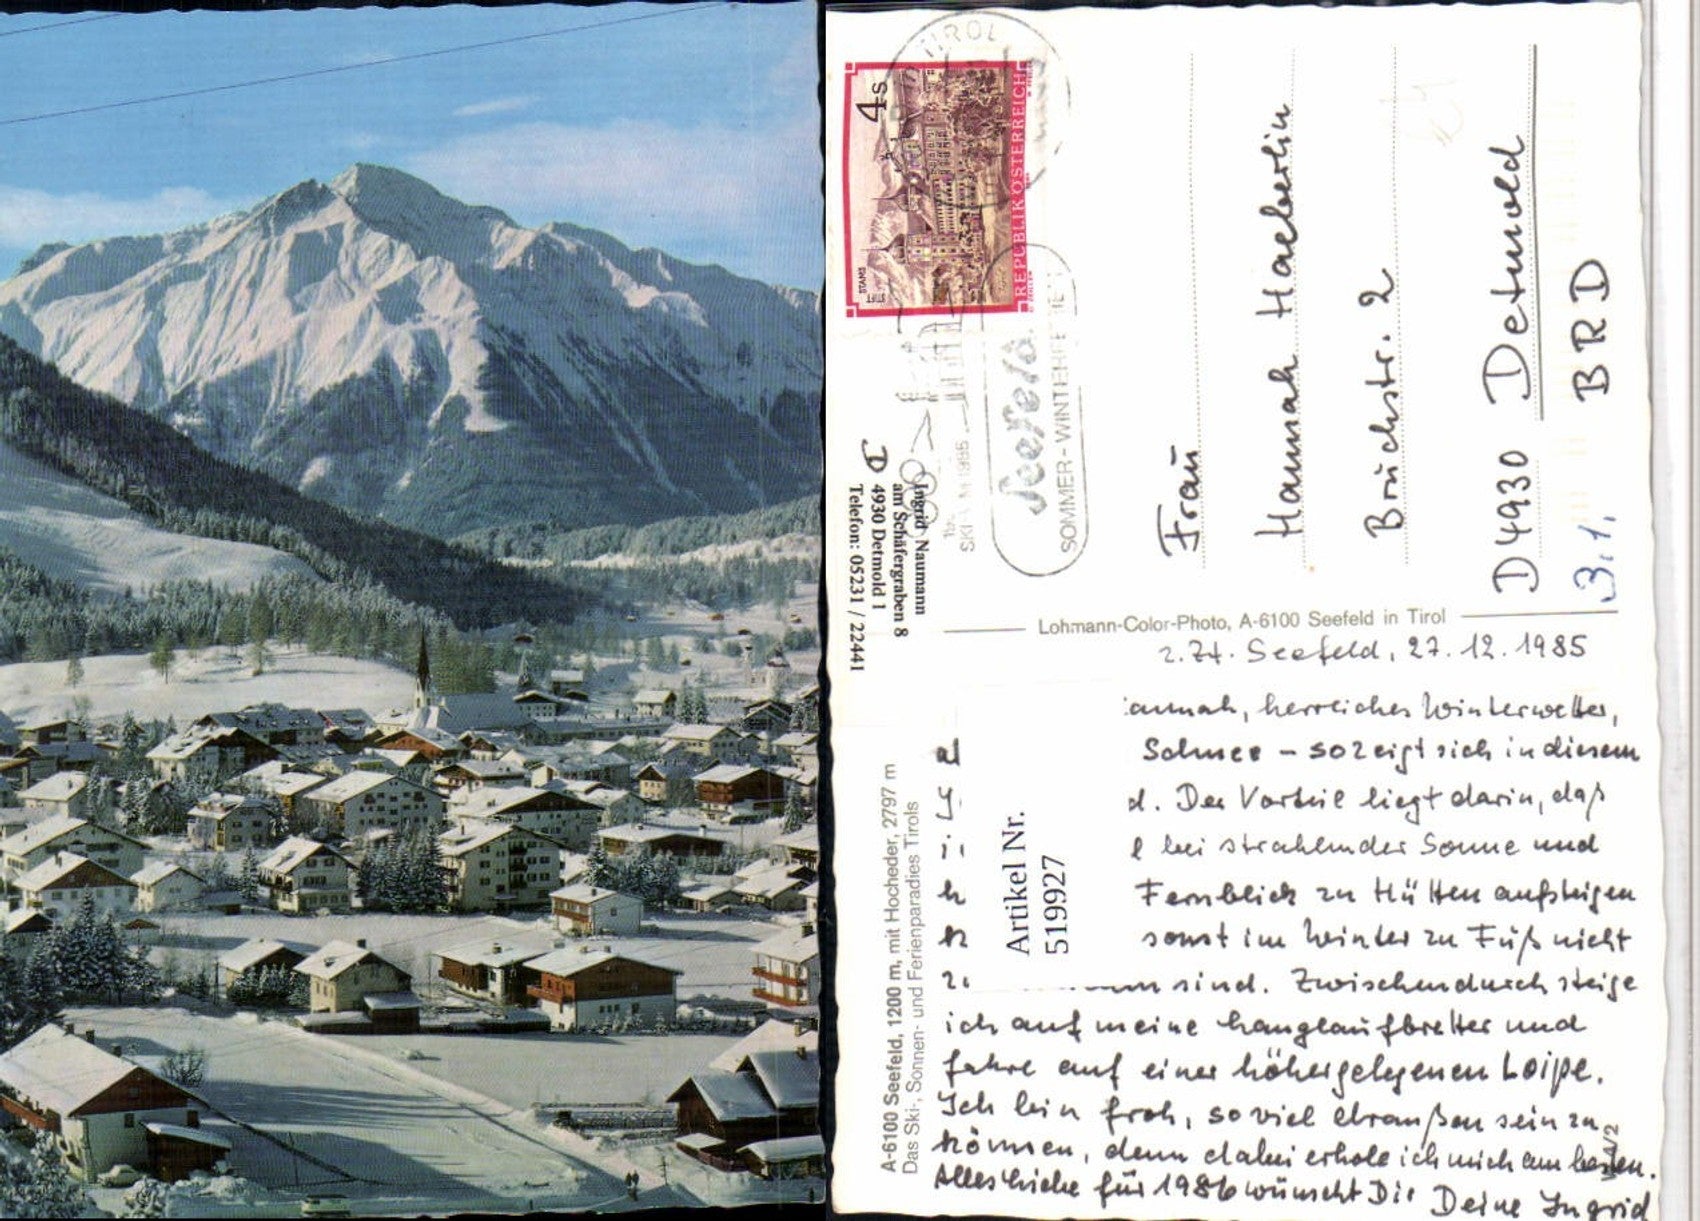 TIROL
4 S
STIFT STAMS
REPUBLIK ÖSTERREICH
Seefeld
SOMMER-WINTER
SKI 1985
Ingrid Naumann
am Schäfergraben 8
D 4930 Detmold 1
Telefon: 05231 / 22441
Frau
Hannah Haeberlin
Bruchstr. 2
D 4930 Detmold
BRD
3.1.
Lohmann-Color-Photo, A-6100 Seefeld in Tirol
A-6100 Seefeld, 1200 m, mit Hocheder, 2797 m
Das Ski-, Sonnen- und Ferienparadies Tirols
Artikel Nr.
519927
z.Zt. Seefeld, 27.12.1985
annah, herrliches Winterwetter,
Schnee – so zeigt sich in diesem
d. Der Vorteil liegt darin, daß
bei strahlender Sonne und
Fernblick zu Hütten aufsteigen
sonst im Winter zu Fuß nicht
sind. Zwischendurch steige
ich auf meine Langlaufbretter und
fahre auf einer höhergelegenen Loipe.
Ich bin froh, so viel draußen sein zu
können, denn dabei erhole ich mich am besten.
Alles Liebe für 1986 wünscht Dir Deine Ingrid